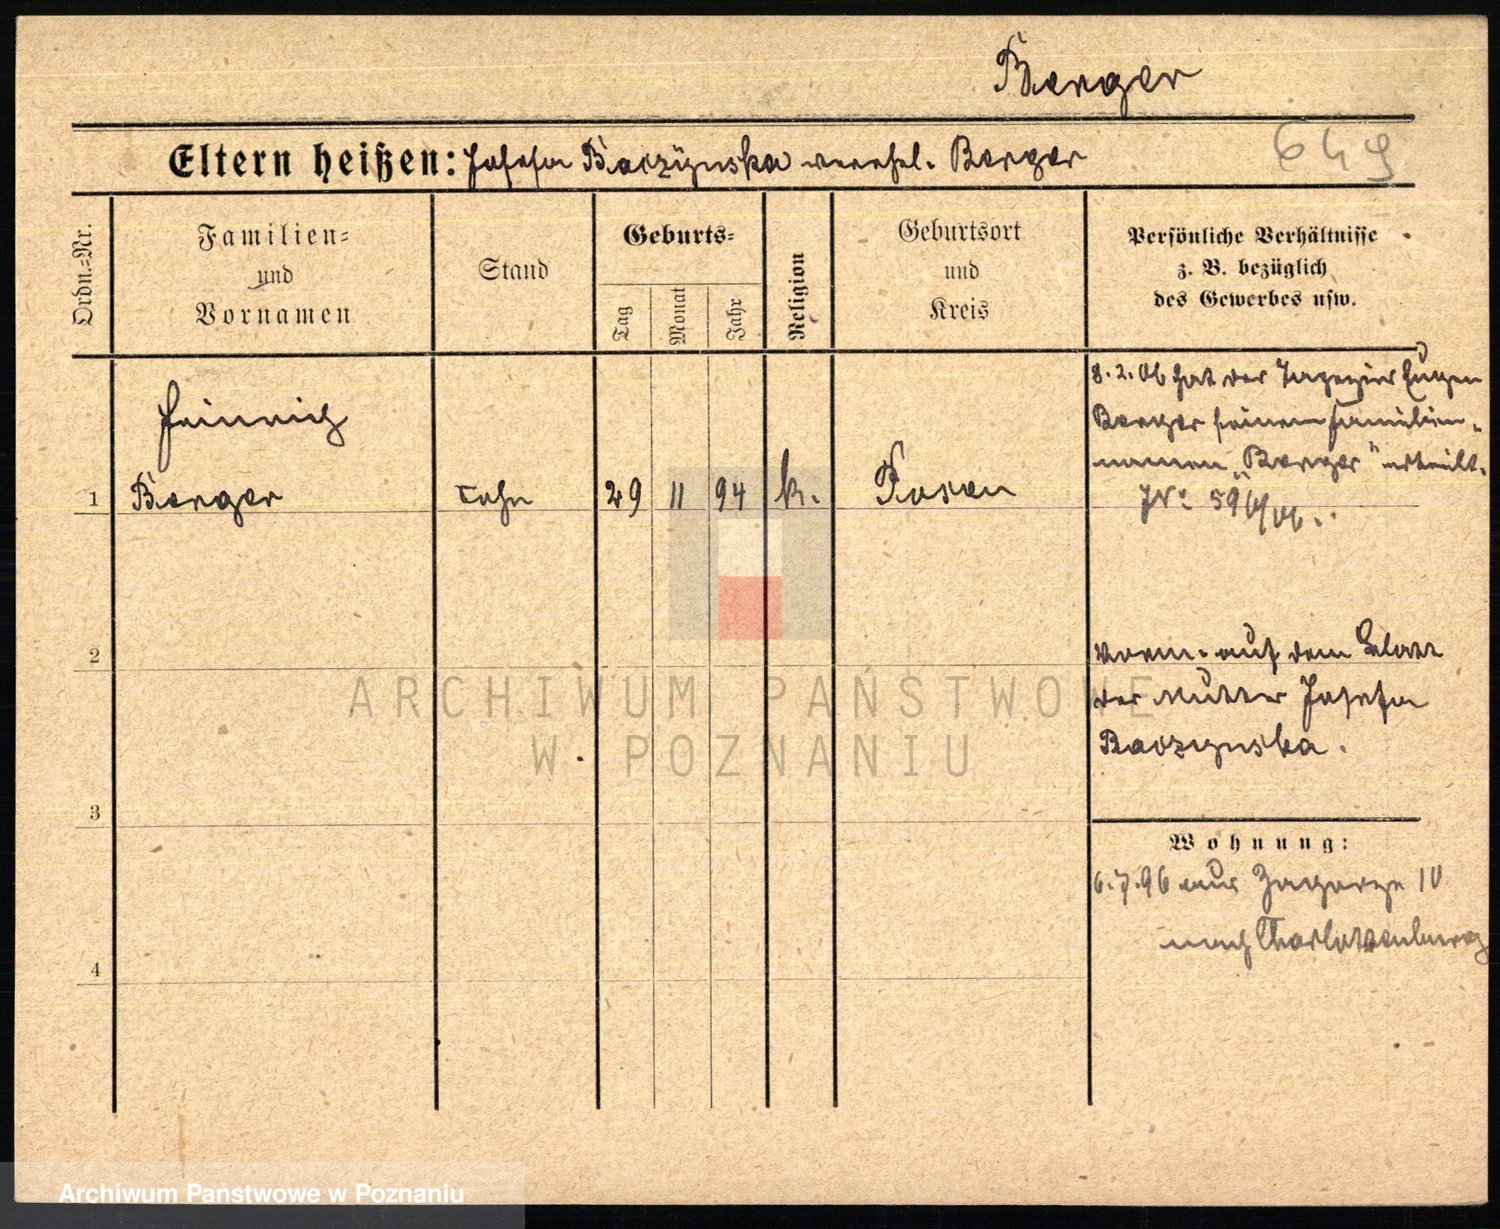 Berger
Eltern heißen: Josefa Raczynska verehel. Berger
649
Ordn.-Nr.
Familien-
und
Vornamen
Stand
Geburts-
Tag
Monat
Jahr
Religion
Geburtsort
und
Kreis
Persönliche Verhältnisse
z. B. bezüglich
des Gewerbes usw.
Heinrich
1 Berger Sohn 29 11 94 k. Posen
8.2.06 hat der Tapezier Eugen
Berger seinen Familien-
namen „Berger" erteilt.
2
vorm. auf dem Blatt
der Mutter Josefa
Raczynska.
3
Wohnung:
6.7.96 aus Zagorze 10
nach Charlottenburg
4
ARCHIWUM PAŃSTWOWE
W POZNANIU
Archiwum Państwowe w Poznaniu